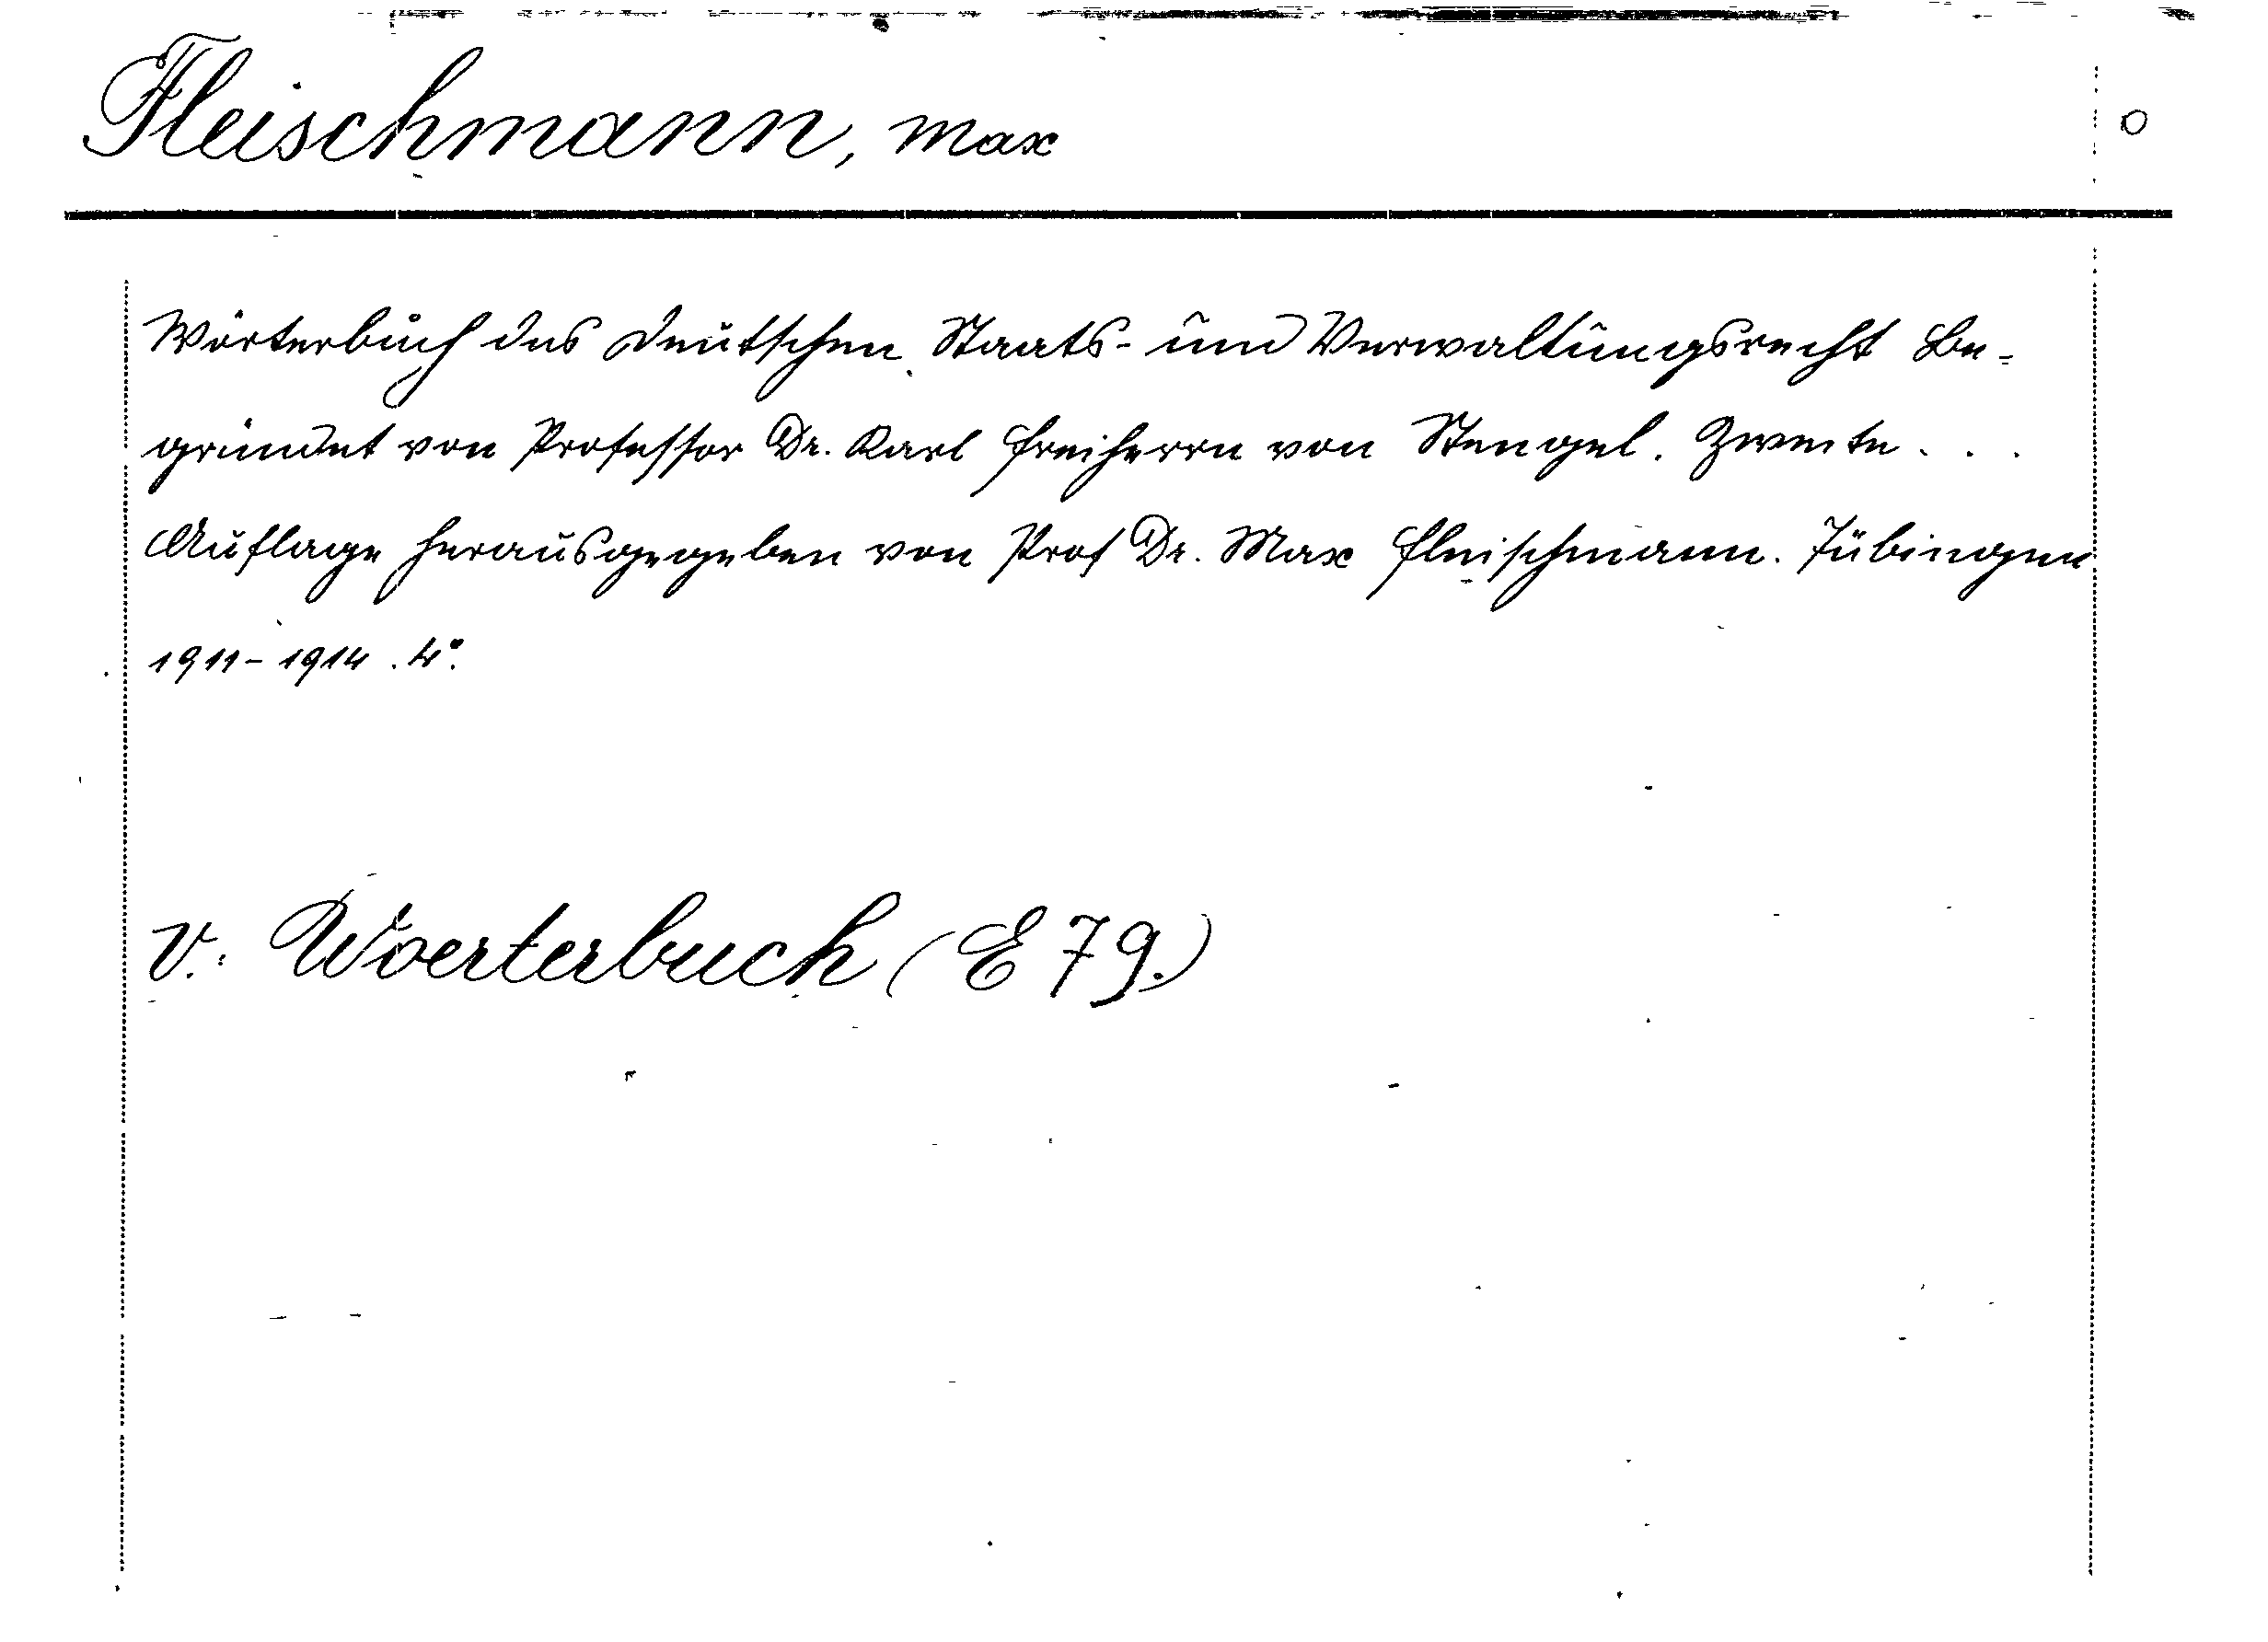 Fleischmann, Max
O
Wörterbuch des Deutschen Staats- und Verwaltungsrecht Be-
gründet von Professor Dr. Karl Freiherrn von Stengel. Zweite . . .
Auflage herausgegeben von Prof Dr. Max Fleischmann. Tübingen
1911-1914. 4°.
v. Woerterbuch (E 79.)